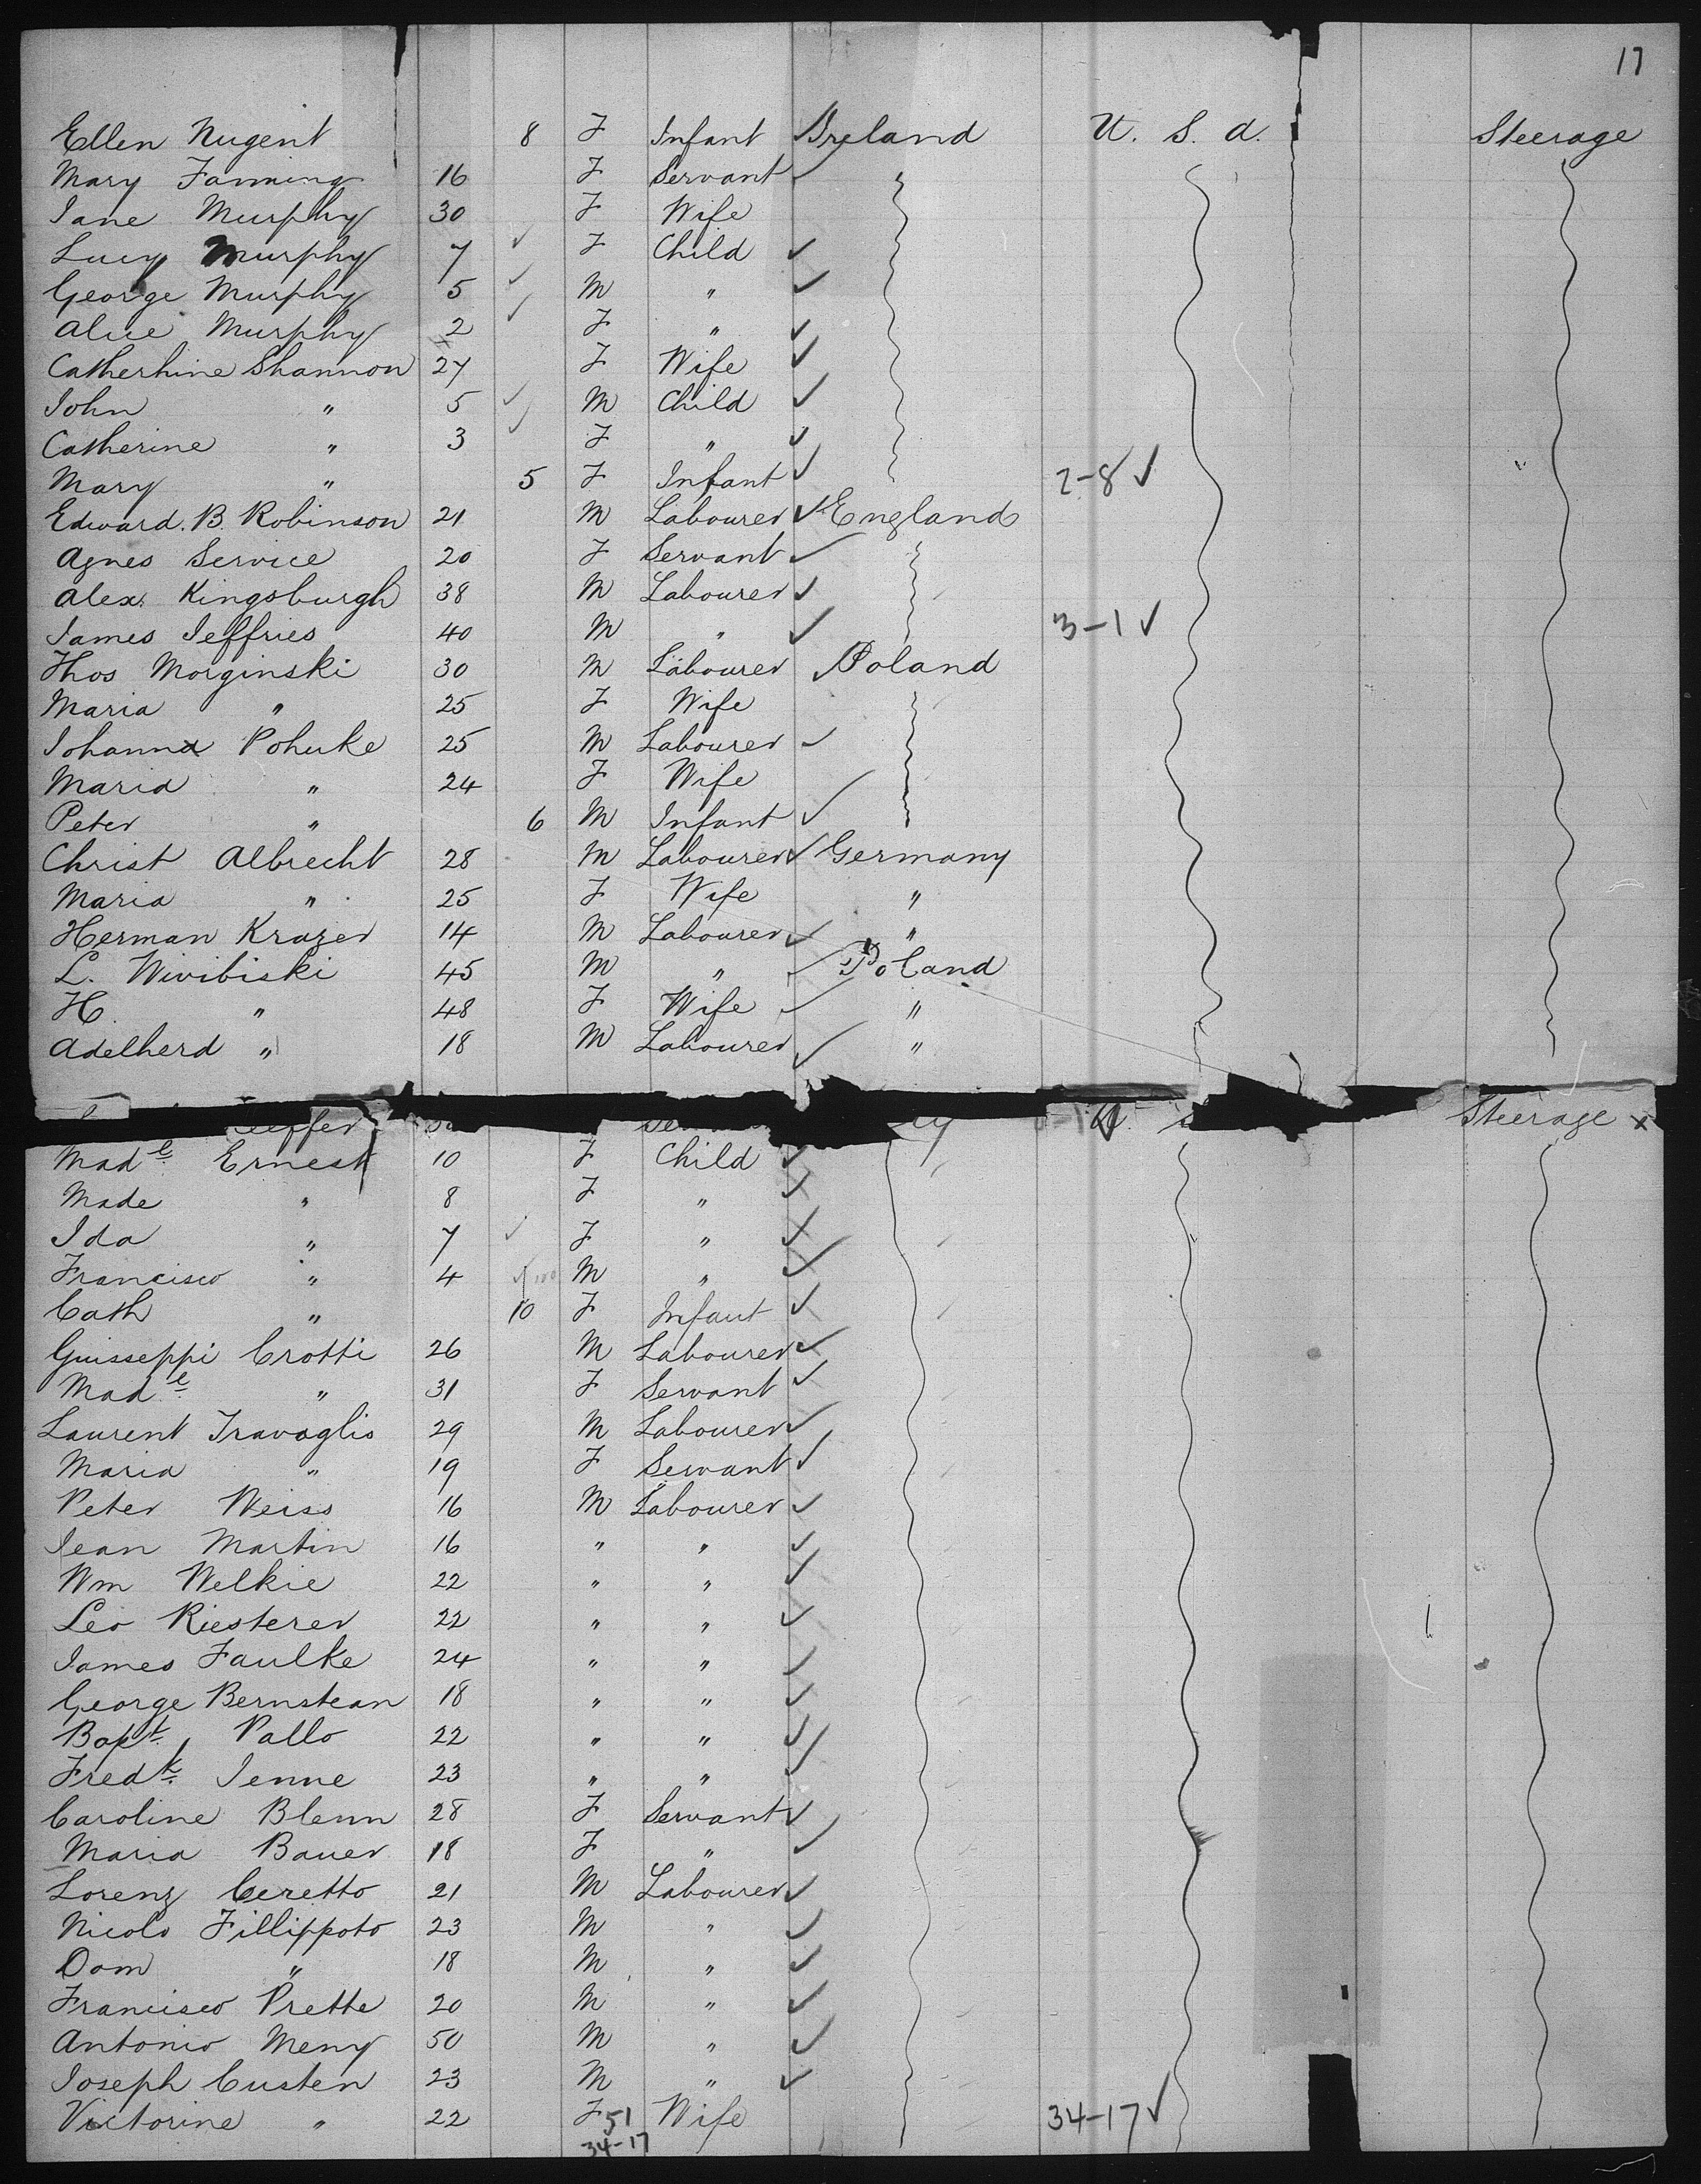 17
Ellen Nugent 8 F Infant Ireland U. S. A. Steerage
Mary Fanning 16 F Servant
Jane Murphy 30 F Wife
Lucy Murphy 7 F Child
George Murphy 5 M "
Alice Murphy 2 F "
Catherhine Shannon 27 F Wife
John " 5 M Child
Catherine " 3 F "
Mary " 5 F Infant 2-8 ✓
Edward. B. Robinson 21 M Labourer England
Agnes Service 20 F Servant
Alex. Kingsburgh 38 M Labourer
James Jeffries 40 M " 3-1 ✓
Thos Morginski 30 M Labourer Poland
Maria " 25 F Wife
Johanna Pohuke 25 M Labourer
Maria " 24 F Wife
Peter " 6 M Infant
Christ Albrecht 28 M Labourer Germany
Maria " 25 F Wife "
Herman Krazer 14 M Labourer "
L. Wivibiski 45 M " Poland
H. " 48 F Wife "
Adelherd " 18 M Labourer "
Steerage x
Made Ernest 10 F Child
Made " 8 F "
Ida " 7 F "
Francisco " 4 M "
Cath " 10 F Infant
Guisseppi Crotti 26 M Labourer
Made " 31 F Servant
Laurent Travaglis 29 M Labourer
Maria " 19 F Servant
Peter Weiss 16 M Labourer
Jean Martin 16 " "
Wm Welkie 22 " "
Leo Riesterer 22 " "
James Faulke 24 " "
George Bernstean 18 " "
Bapt Pallo 22 " "
Fredk Jenne 23 " "
Caroline Blenn 28 F Servant
Maria Bauer 18 F "
Lorenz Ceretto 21 M Labourer
Nicolo Fillippoto 23 M "
Dom " 18 M "
Francisco Prette 20 M "
Antonio Meny 50 M "
Joseph Custen 23 M "
Victorine " 22 F Wife 34-17 ✓
51
34-17